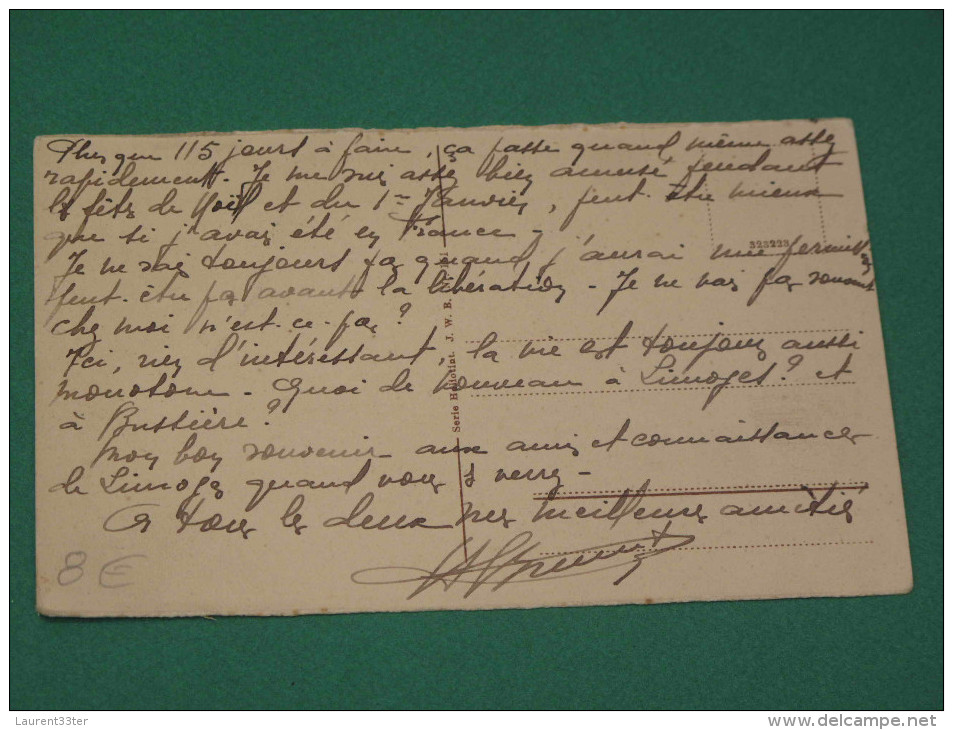 Plus que 115 jours à faire, ça passe quand même assez
rapidement. Je me suis assez bien amusé pendant
les fêtes de Noël et du 1er Janvier, peut-être mieux
que si j'avais été en France -
323223
Je ne sais toujours pas quand j'aurai une permission
peut-être pas avant la libération - Je ne vais pas souvent
chez moi n'est-ce-pas?
Ici, rien d'intéressant, la vie est toujours aussi
monotone - Quoi de nouveau à Limoges? et
à Bussière?
Mon bon souvenir aux amis et connaissances
de Limoges quand vous les verrez -
A tous les deux mes meilleures amitiés
Serie Heliotint. J. W. B.
8 €
Laurent33ter
www.delcampe.net